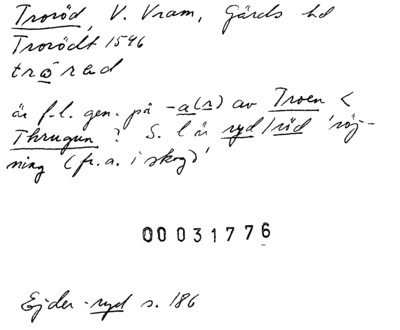 Troröd, V. Vram, Gärds hd
Trorödt 1546
trǫrəd
är f.l. gen. på -a(r) av Troen <
Thrugun ? S. l är ryd/röd 'röj-
ning (fr. a. i skog)'
00031776
Ejder -ryd s. 186